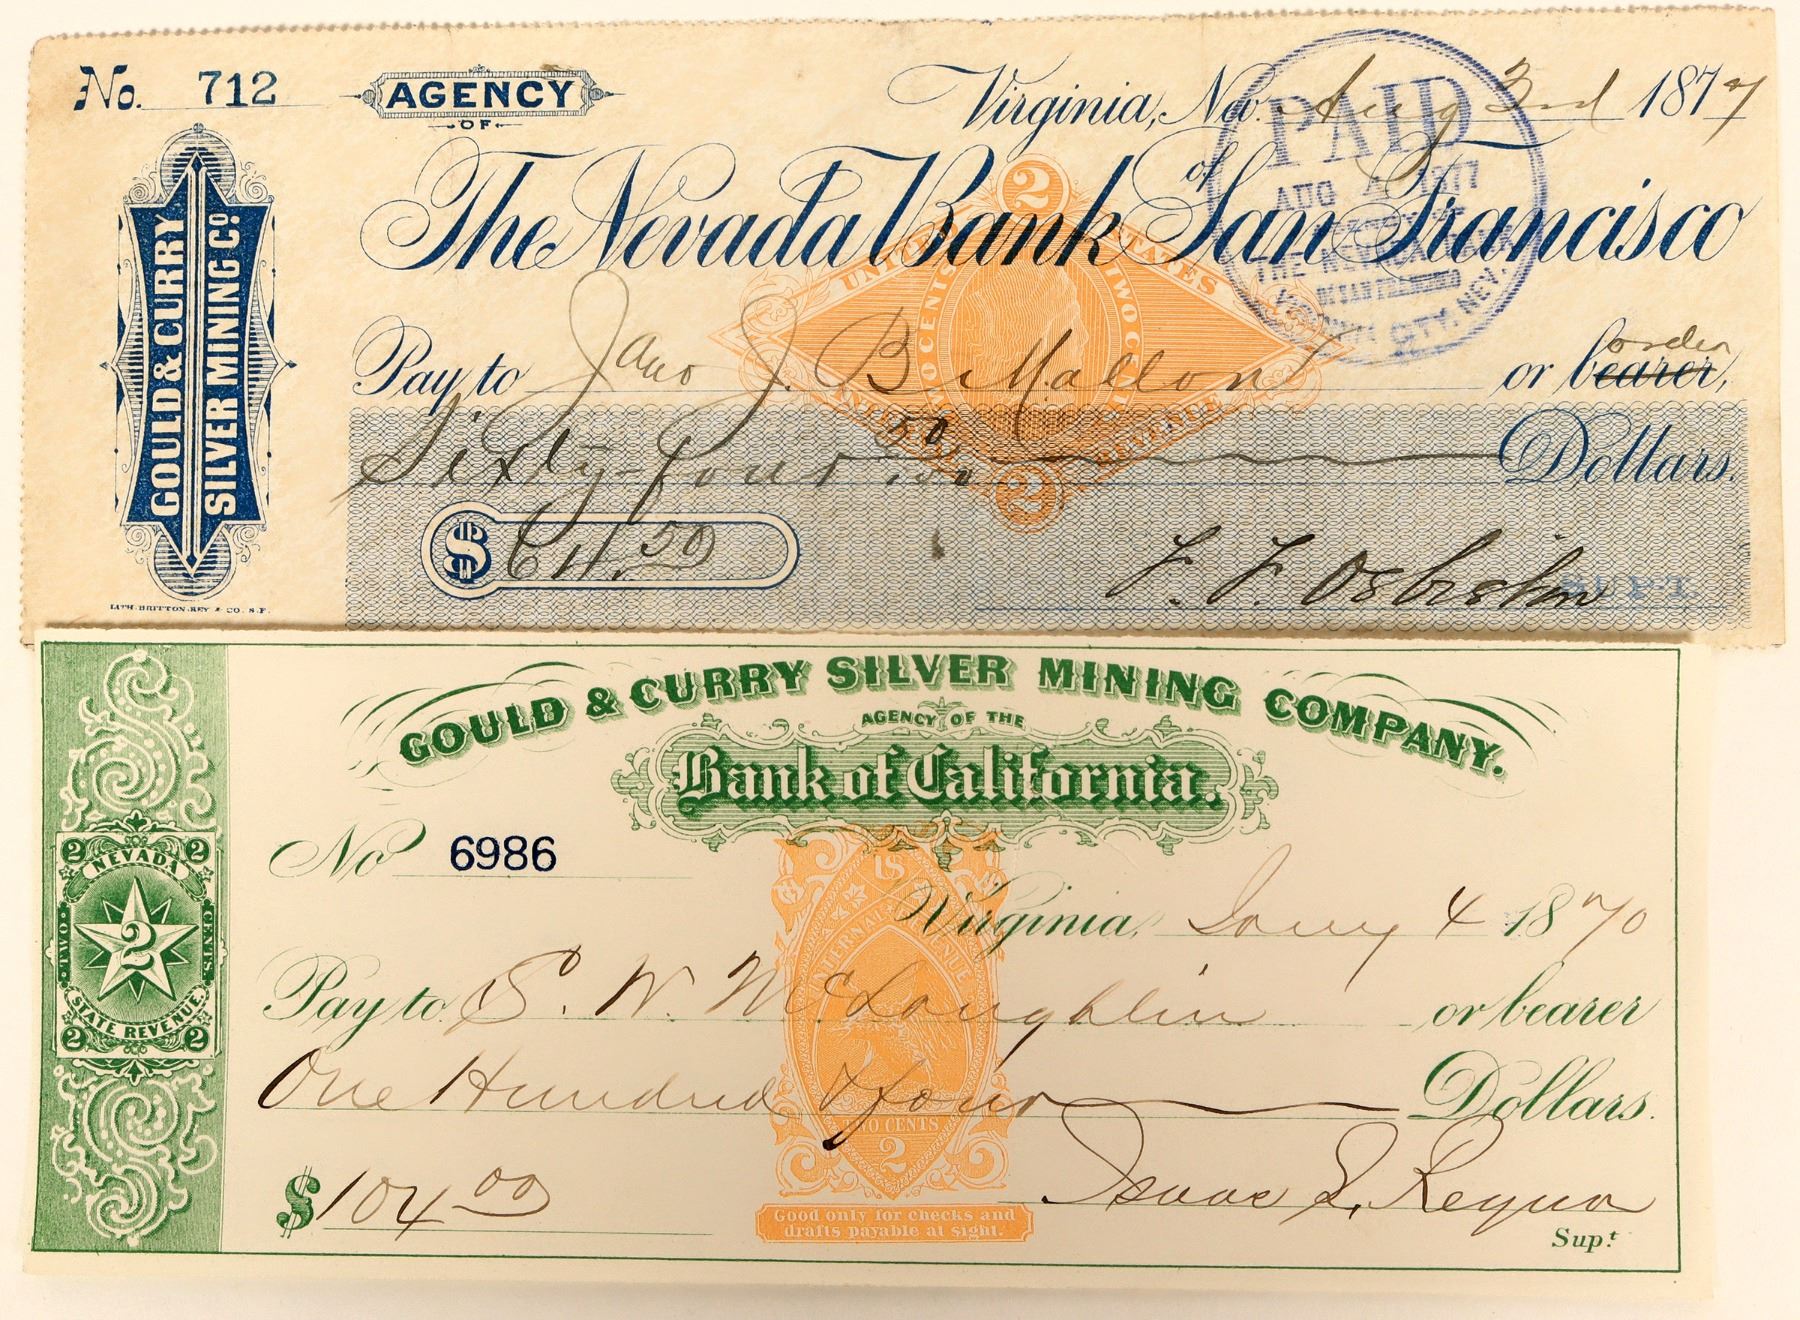 No. 712
AGENCY
OF
Virginia, Nev. Aug 3rd 1877
The Nevada Bank of San Francisco
GOULD & CURRY
SILVER MINING CO.
PAID
AUG 1877
THE NEVADA BANK
OF SAN FRANCISCO
VIRGINIA CITY, NEV.
2
UNITED STATES
TWO CENTS
TWO CENTS
INTERNAL REVENUE
2
Pay to Jano J. B Mallon or bearer, order
Sixty-four 50/100 Dollars.
$ 64.50
F. F. Osbiston SUPT.
LITH. BRITTON, REY & CO. S.F.
GOULD & CURRY SILVER MINING COMPANY.
AGENCY OF THE
Bank of California.
No 6986
Virginia, Jany 4 1870
2 NEVADA 2
TWO 2 CENTS.
STATE REVENUE.
2 2
US
INTERNAL REVENUE
Pay to S. W. McLaughlin or bearer
One Hundred & four Dollars.
TWO CENTS
2
$104 00
Isaac L. Requa
Supt
Good only for checks and
drafts payable at sight.